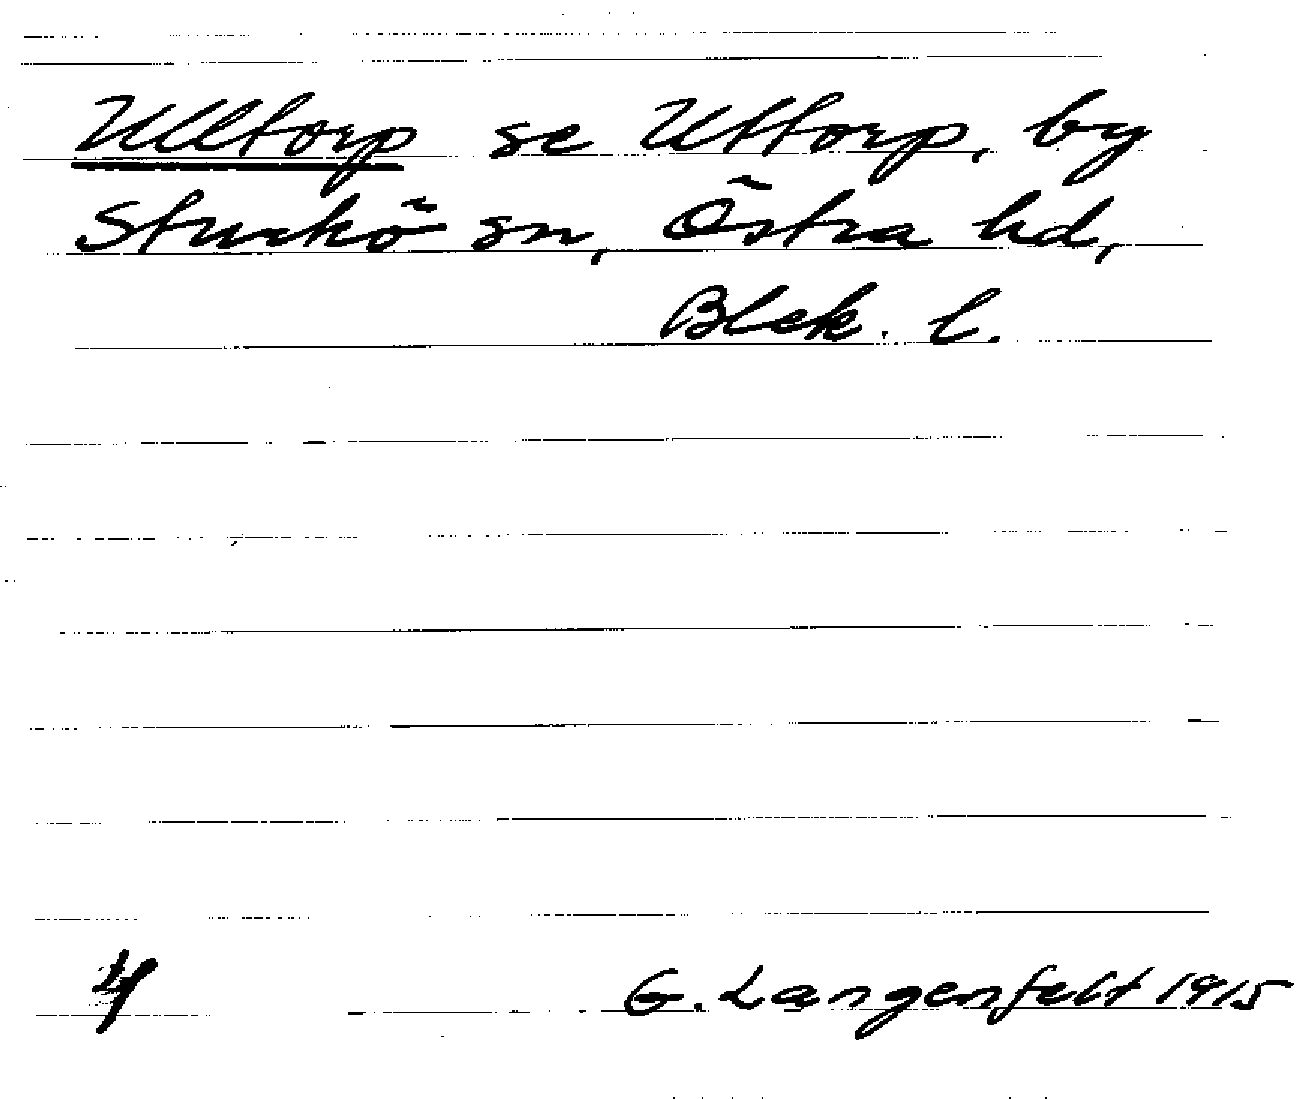 Ulltorp se Uttorp, by
Sturkö sn, Östra hd,
Blek. l.
4 G. Langenfelt 1915